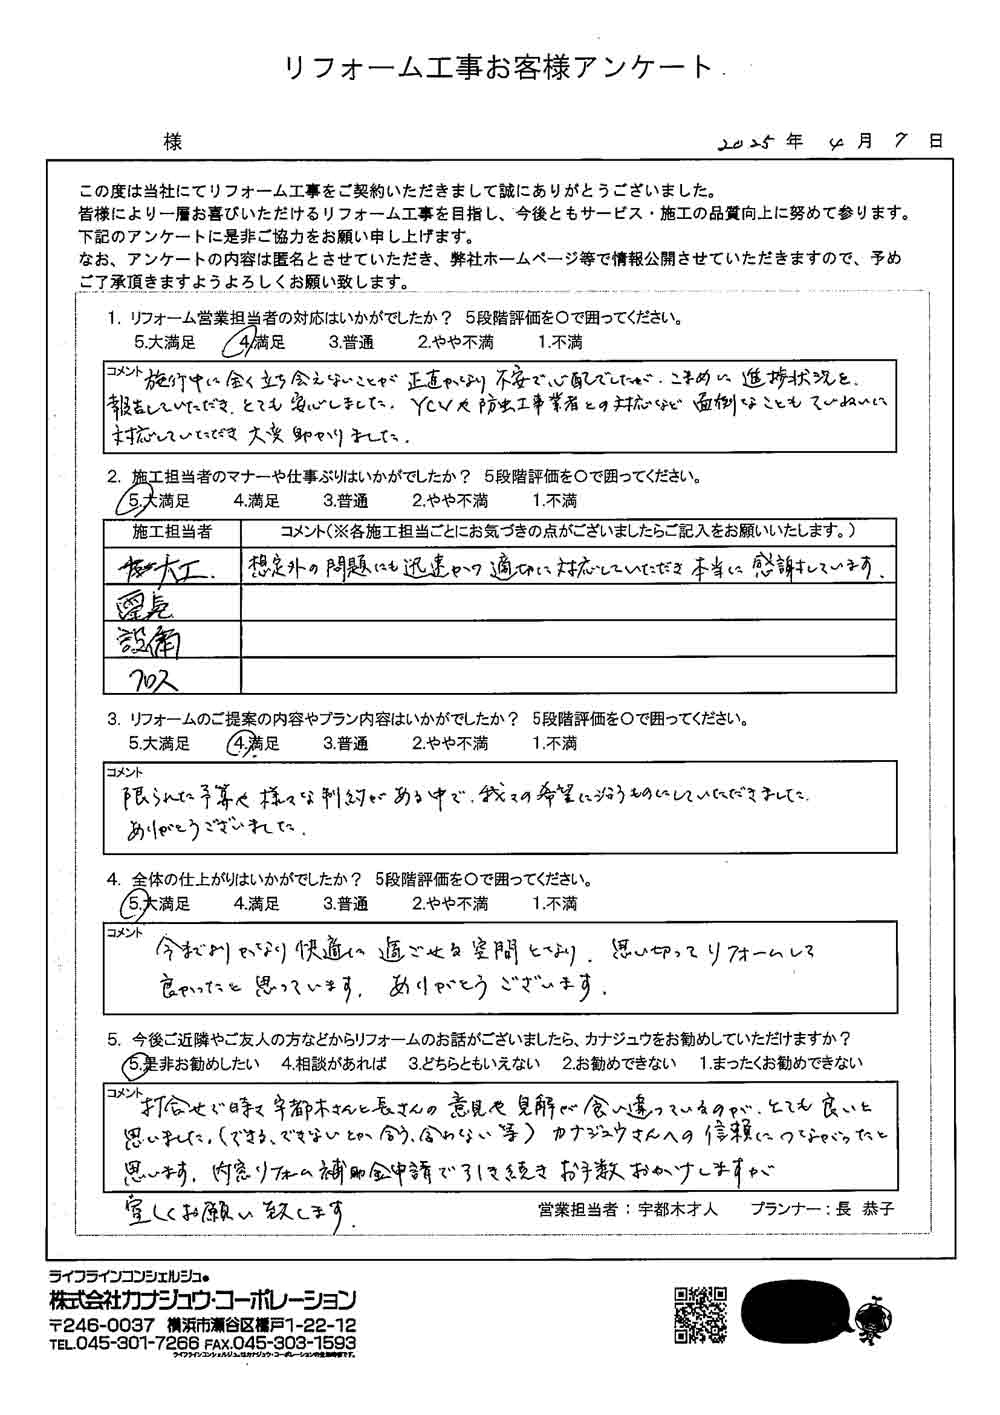 リフォーム工事お客様アンケート
様
2025年 4月 7日
この度は当社にてリフォーム工事をご契約いただきまして誠にありがとうございました。
皆様により一層お喜びいただけるリフォーム工事を目指し、今後ともサービス・施工の品質向上に努めて参ります。
下記のアンケートに是非ご協力をお願い申し上げます。
なお、アンケートの内容は匿名とさせていただき、弊社ホームページ等で情報公開させていただきますので、予め
ご了承頂きますようよろしくお願い致します。
1. リフォーム営業担当者の対応はいかがでしたか? 5段階評価を〇で囲ってください。
5.大満足 4.満足 3.普通 2.やや不満 1.不満
コメント
施行中に全く立ち会えないことが 正直かなり 不安で心配でしたが、こまめに 進捗状況を、
報告していただき、とても 安心しました。YCVや防虫工事業者との対応など 面倒なことも ていねいに
対応していただき 大変 助かりました。
2. 施工担当者のマナーや仕事ぶりはいかがでしたか? 5段階評価を〇で囲ってください。
5.大満足 4.満足 3.普通 2.やや不満 1.不満
施工担当者 コメント(※各施工担当ごとにお気づきの点がございましたらご記入をお願いいたします。)
大工. 想定外の問題にも 迅速かつ 適切に対応していただき 本当に 感謝しています.
電気
設備
クロス
3. リフォームのご提案の内容やプラン内容はいかがでしたか? 5段階評価を〇で囲ってください。
5.大満足 4.満足 3.普通 2.やや不満 1.不満
コメント
限られた予算や 様々な制約が ある中で、我々の希望に沿うものにしていただきました。
ありがとうございました。
4. 全体の仕上がりはいかがでしたか? 5段階評価を〇で囲ってください。
5.大満足 4.満足 3.普通 2.やや不満 1.不満
コメント
今までより かなり 快適に 過ごせる 空間となり、思い切ってリフォームして
良かったと 思っています。 ありがとう ございます.
5. 今後ご近隣やご友人の方などからリフォームのお話がございましたら、カナジュウをお勧めしていただけますか?
5.是非お勧めしたい 4.相談があれば 3.どちらともいえない 2.お勧めできない 1.まったくお勧めできない
コメント
打合せで時々 宇都木さんと長さんの 意見や 見解が 食い違っているのが、とても 良いと
思いました。(できる、できないとか 合う、合わない 等) カナジュウさんへの 信頼に つながったと
思います。内窓リフォーム補助金申請で引き続き お手数 おかけしますが
宜しくお願い致します.
営業担当者:宇都木才人 プランナー:長 恭子
ライフラインコンシェルジュ。
株式会社カナジュウ・コーポレーション
〒246-0037 横浜市瀬谷区橋戸1-22-12
TEL.045-301-7266 FAX.045-303-1593
ライフラインコンシェルジュはカナジュウ・コーポレーションの登録商標です。